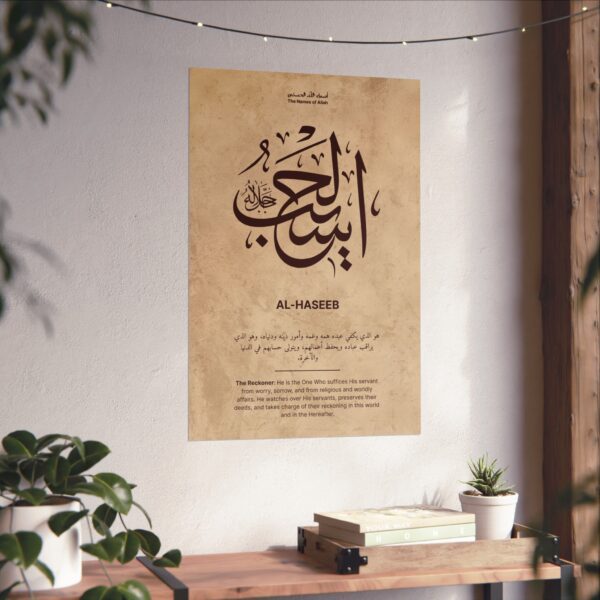 أسماء الله الحسنى
The Names of Allah
الحسيب
جل جلاله
AL-HASEEB
هو الذي يكفي عبده همه وغمه وأمور دينه ودنياه، وهو الذي
يراقب عباده ويحفظ أعمالهم، ويتولى حسابهم في الدنيا
والآخرة.
The Reckoner: He is the One Who suffices His servant
from worry, sorrow, and from religious and worldly
affairs. He watches over His servants, preserves their
deeds, and takes charge of their reckoning in this world
and in the Hereafter.